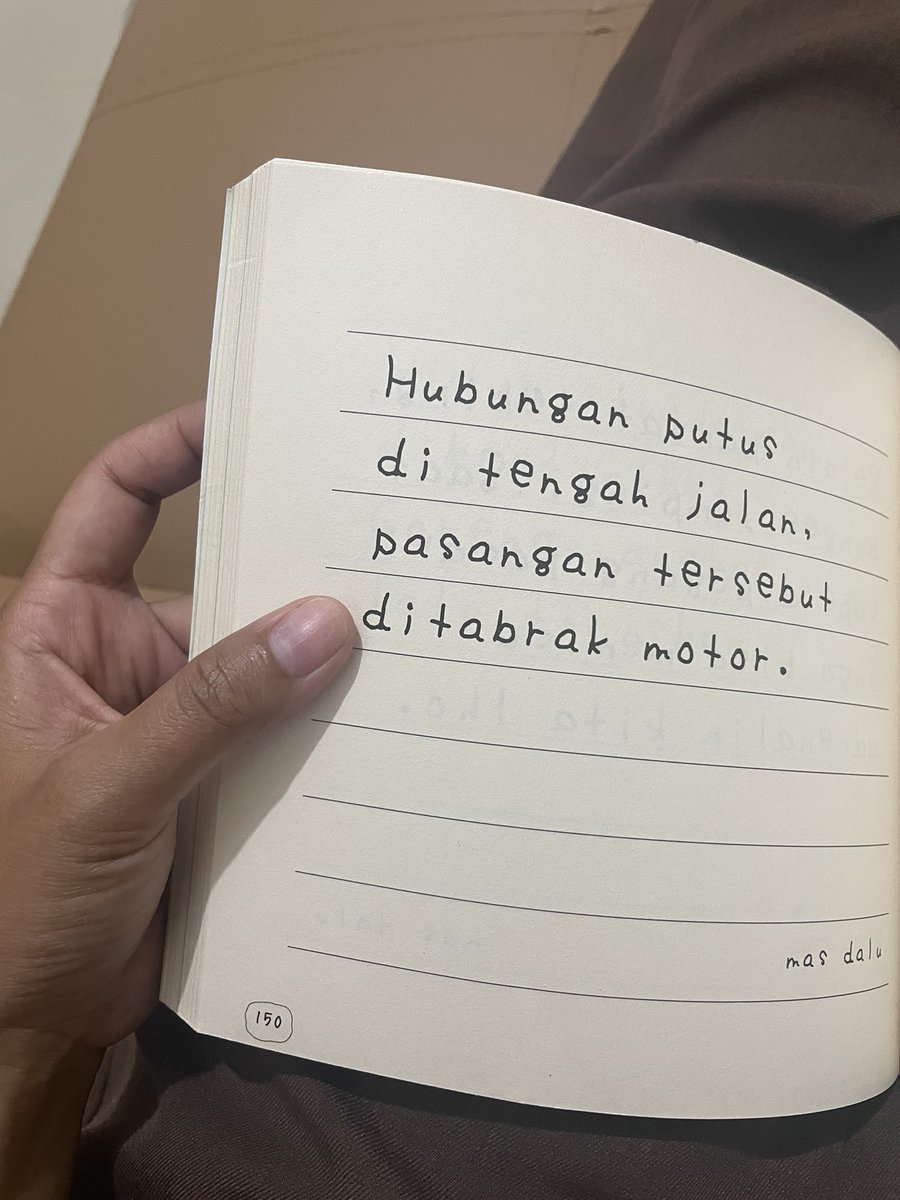 Hubungan putus
di tengah jalan,
pasangan tersebut
ditabrak motor.
mas dalu
150